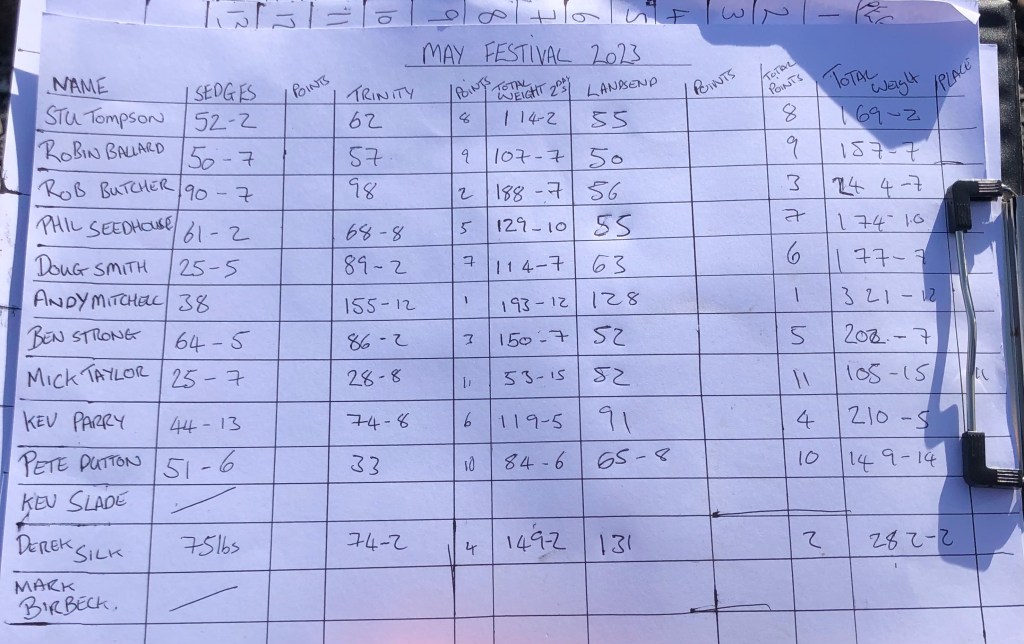 13 12 11 10 9 8 7 6 5 4 3 2 1
MAY FESTIVAL 2023
NAME SEDGES POINTS TRINITY POINTS TOTAL WEIGHT 2 DAYS LANDSEND POINTS TOTAL POINTS TOTAL Weight PLACE
STU TOMPSON 52-2 62 8 114-2 55 8 169-2
ROBIN BALLARD 50-7 57 9 107-7 50 9 157-7
ROB BUTCHER 90-7 98 2 188-7 56 3 244-7
PHIL SEEDHOUSE 61-2 68-8 5 129-10 55 7 174-10
DOUG SMITH 25-5 89-2 7 114-7 63 6 177-7
ANDY MITCHELL 38 155-12 1 193-12 128 1 321-12
BEN STRONG 64-5 86-2 3 150-7 52 5 202-7
MICK TAYLOR 25-7 28-8 11 53-15 52 11 105-15
KEV PARRY 44-13 74-8 6 119-5 91 4 210-5
PETE DUTTON 51-6 33 10 84-6 65-8 10 149-14
KEV SLADE
DEREK SILK 75lbs 74-2 4 149-2 131 2 282-2
MARK
BIRBECK.